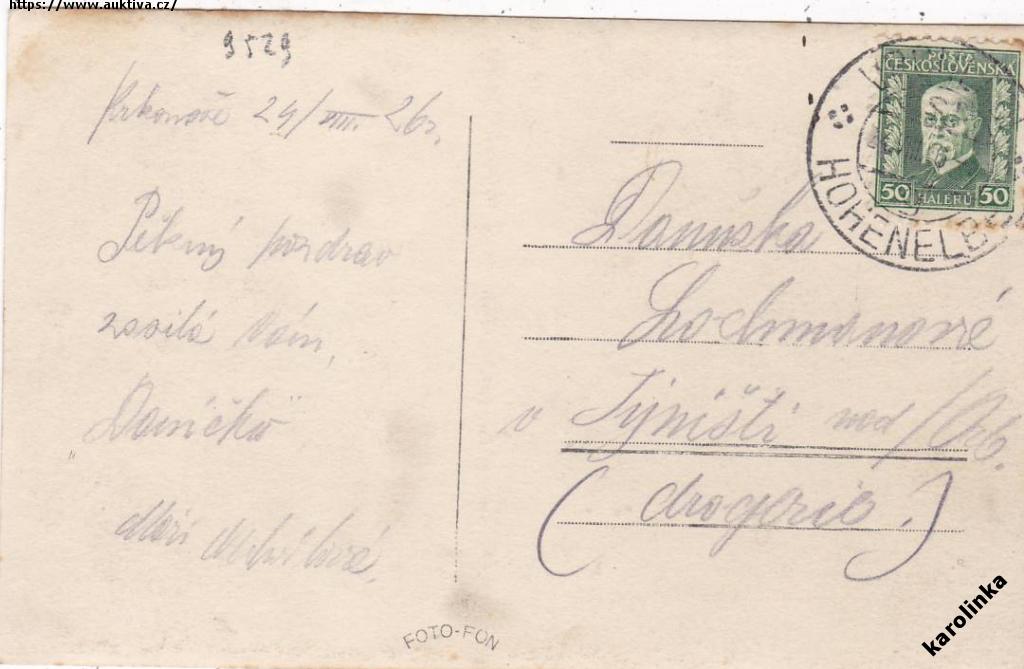 https://www.auktiva.cz/
9529
Krkonoše 24/VIII. 26.
Pěkný pozdrav
zasílá Vám,
Danička
POŠTA
ČESKOSLOVENSKÁ
50 HALÉŘŮ 50
HOHENELB
Danuška
Lochmanové
v Týništi nad/Orl.
(drogerie.)
FOTO-FON
karolinka